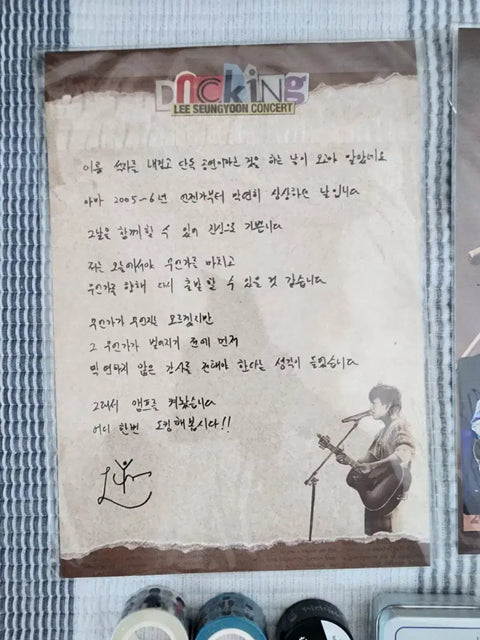 Docking
LEE SEUNGYOON CONCERT
이름 석자를 내걸고 단독 공연이라는 것을 하는 날이 오고야 말았네요
아마 2005~6년 언젠가부터 막연히 상상하던 날입니다
그날을 함께할 수 있어 진심으로 기쁩니다
저는 오늘에서야 무언가를 마치고
무언가를 향해 다시 출발 할 수 있을 것 같습니다
무언가가 무언지는 모르겠지만
그 무언가가 벌어지기 전에 먼저
막연하지 않은 감사를 전해야 한다는 생각이 들었습니다
그래서 앰프를 켜놨습니다
어디 한번 도킹해봅시다!!